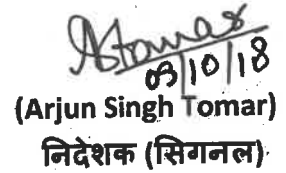 Atomar
03/10/18
(Arjun Singh Tomar)
निदेशक (सिगनल)